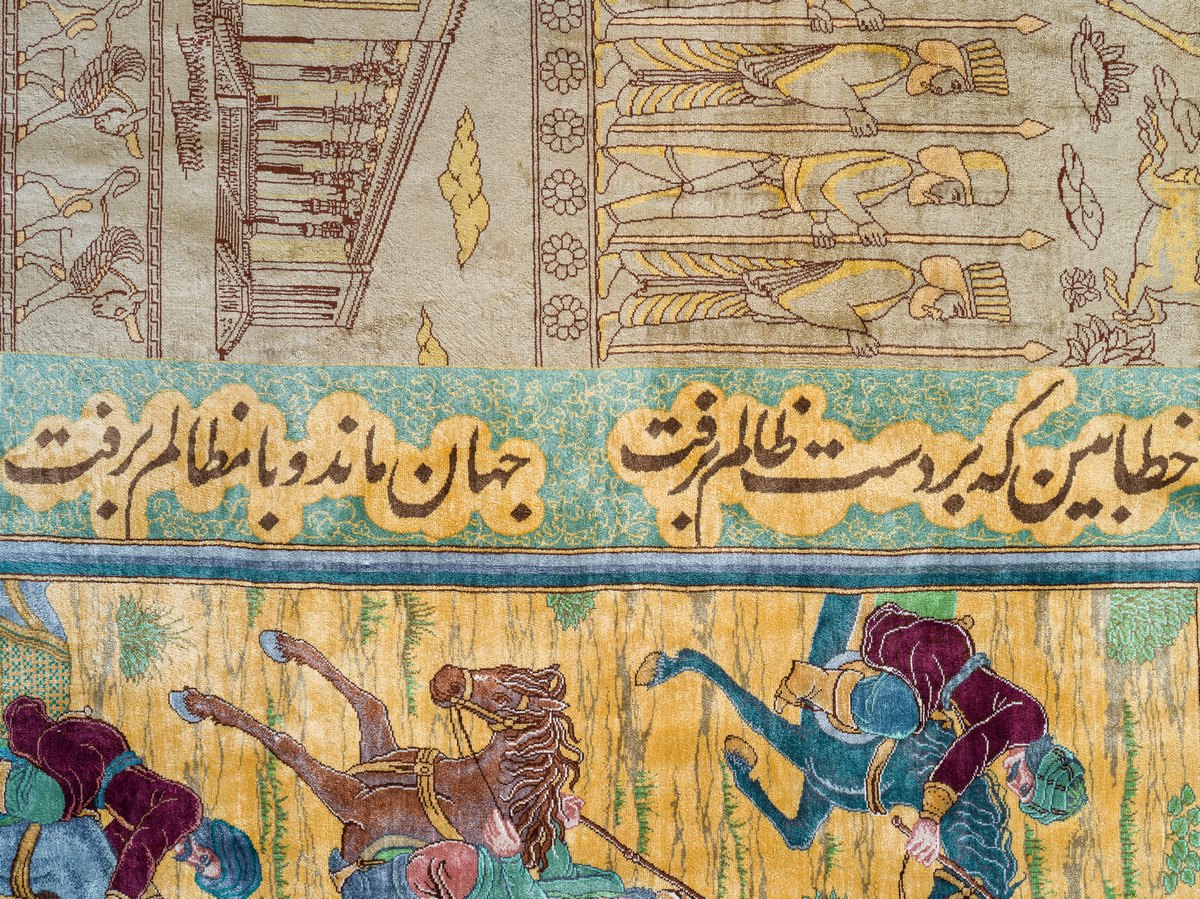 خطا بین که بر دست ظالم برفت جهان ماند و با مظالم برفت